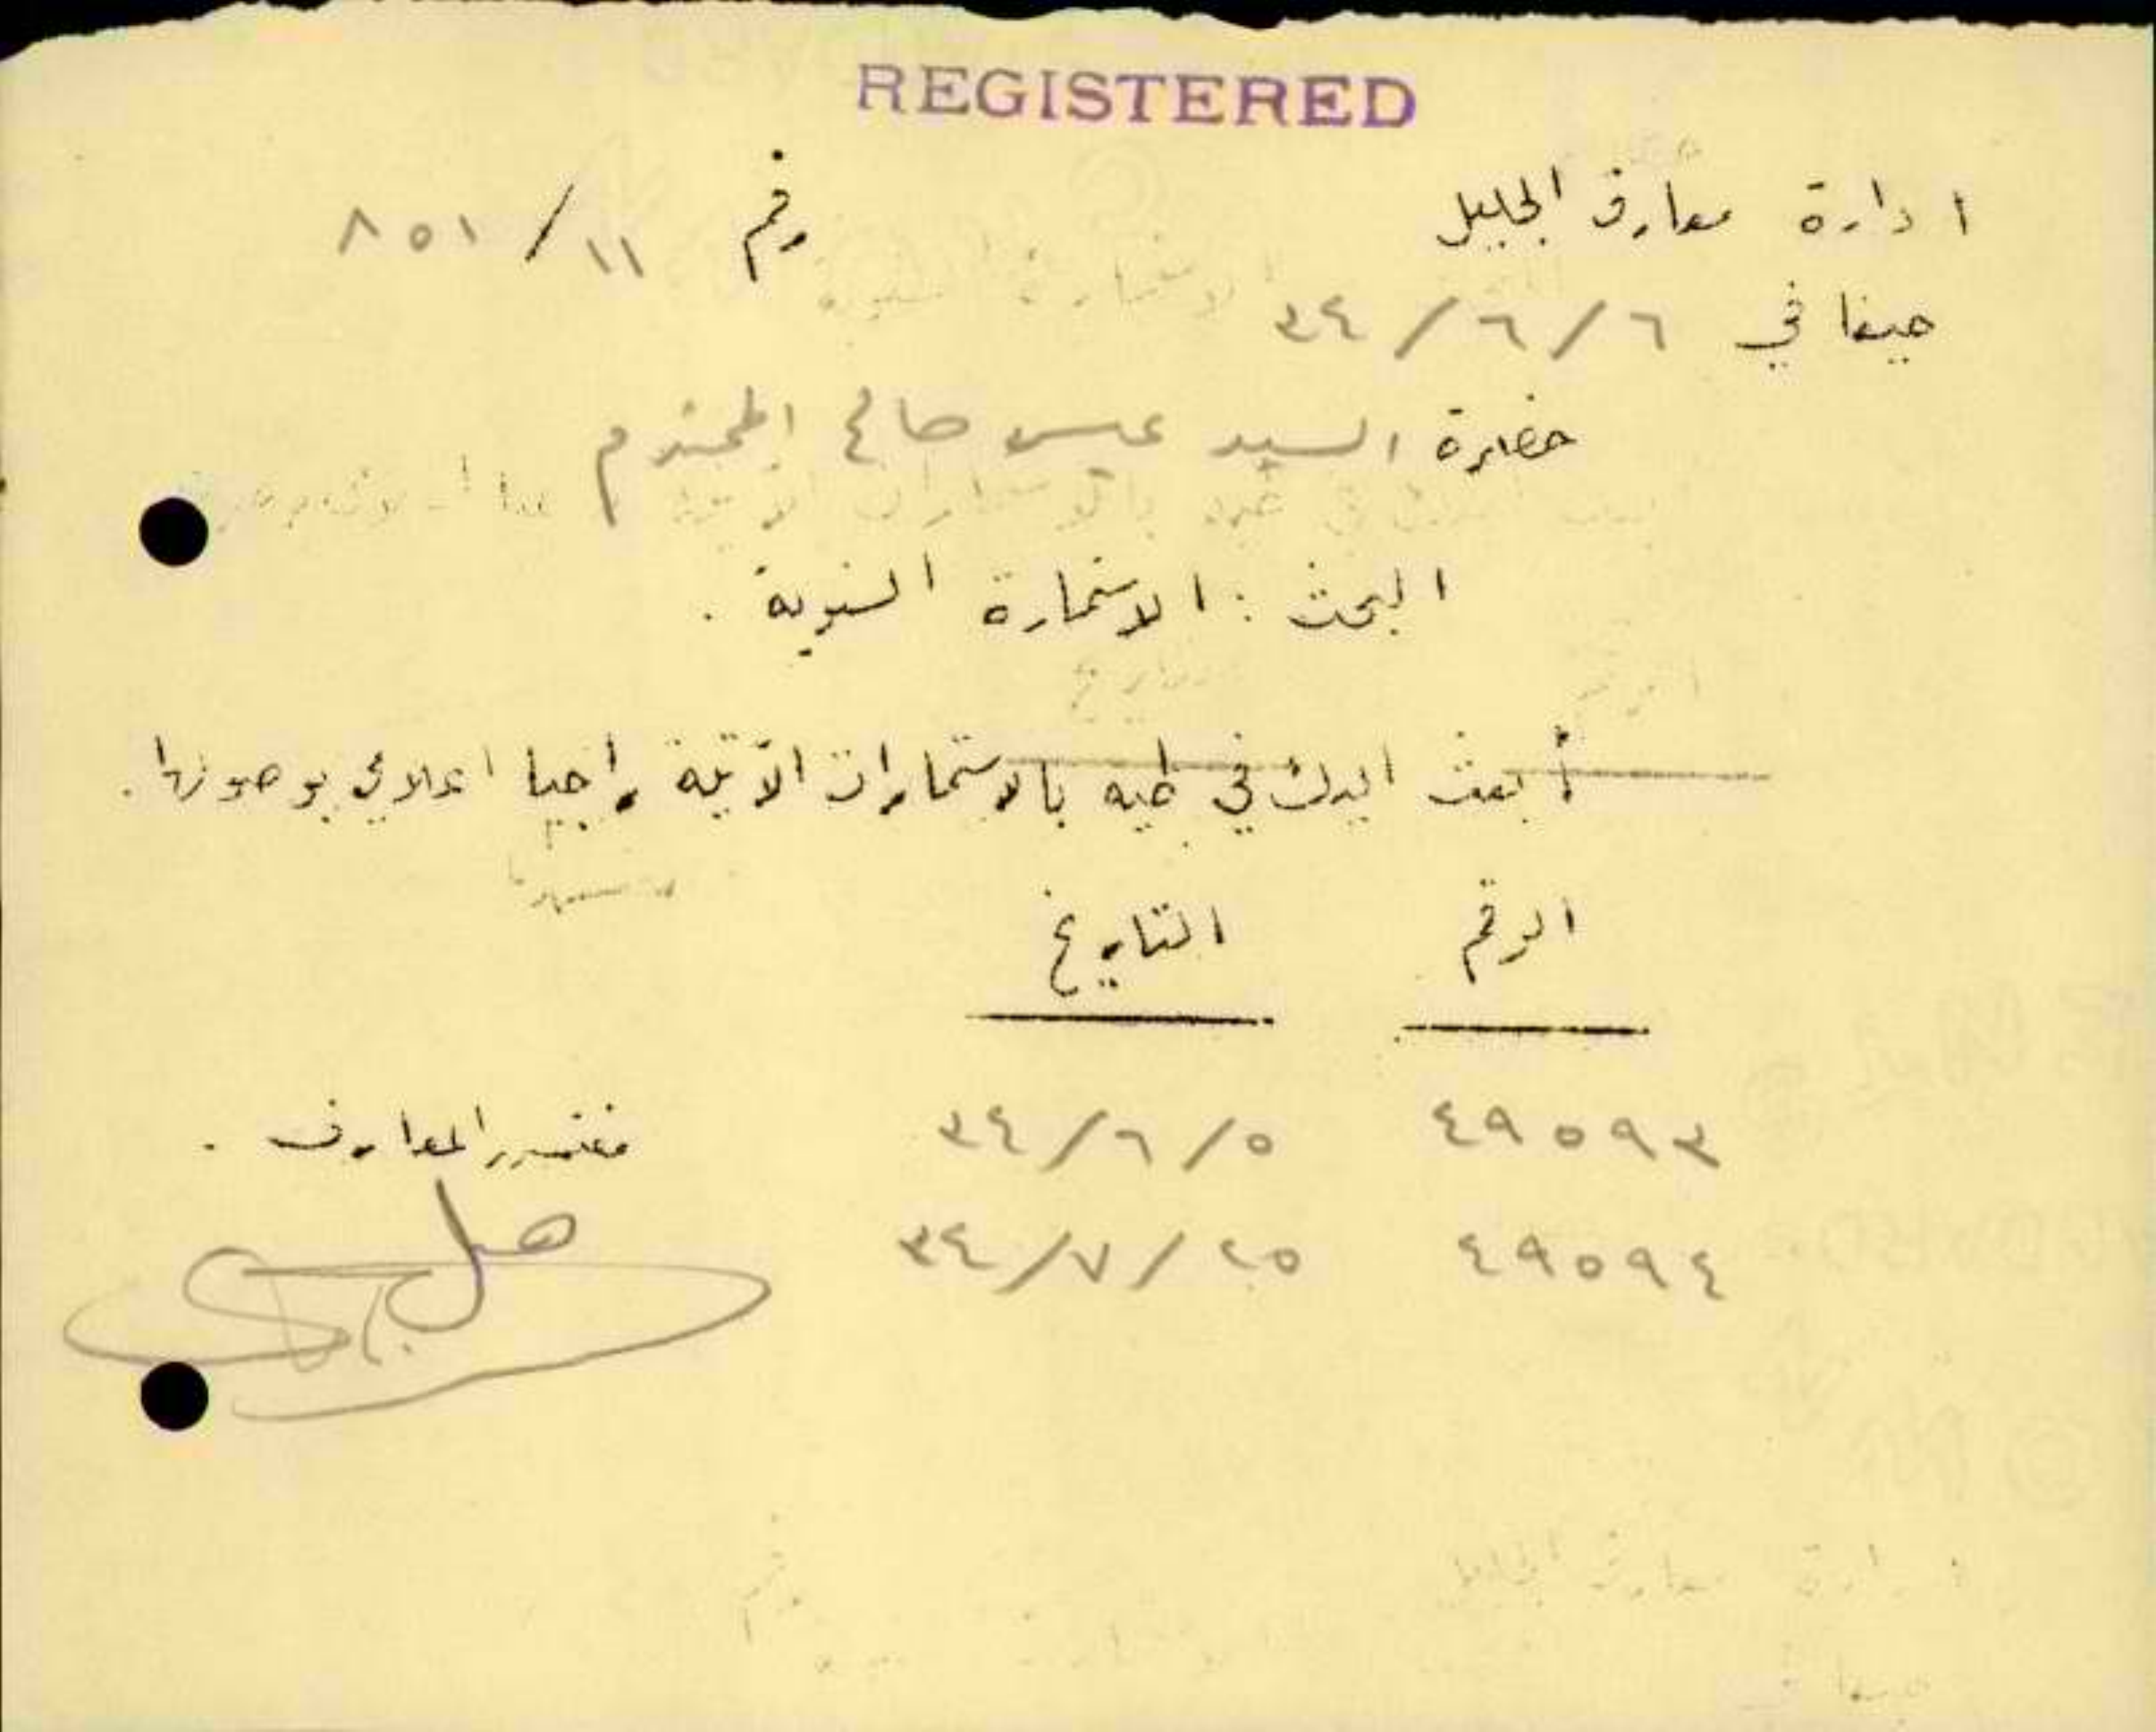 REGISTERED
ادارة معارف الجليل رقم ١١/ ٨٥١
حيفا في ٦/٦/٣٤
حضرة السيد عيسى صالح المحترم
البحث : الاستمارة السنوية .
أبعث اليك في طيه بالاستمارات الآتية راجيا اعلامي بوصولها .
الرقم التاريخ
٤٩٥٩٣ ٣٤/٦/٥ مفتش المعارف .
٤٩٥٩٤ ٣٤/٧/٢٥